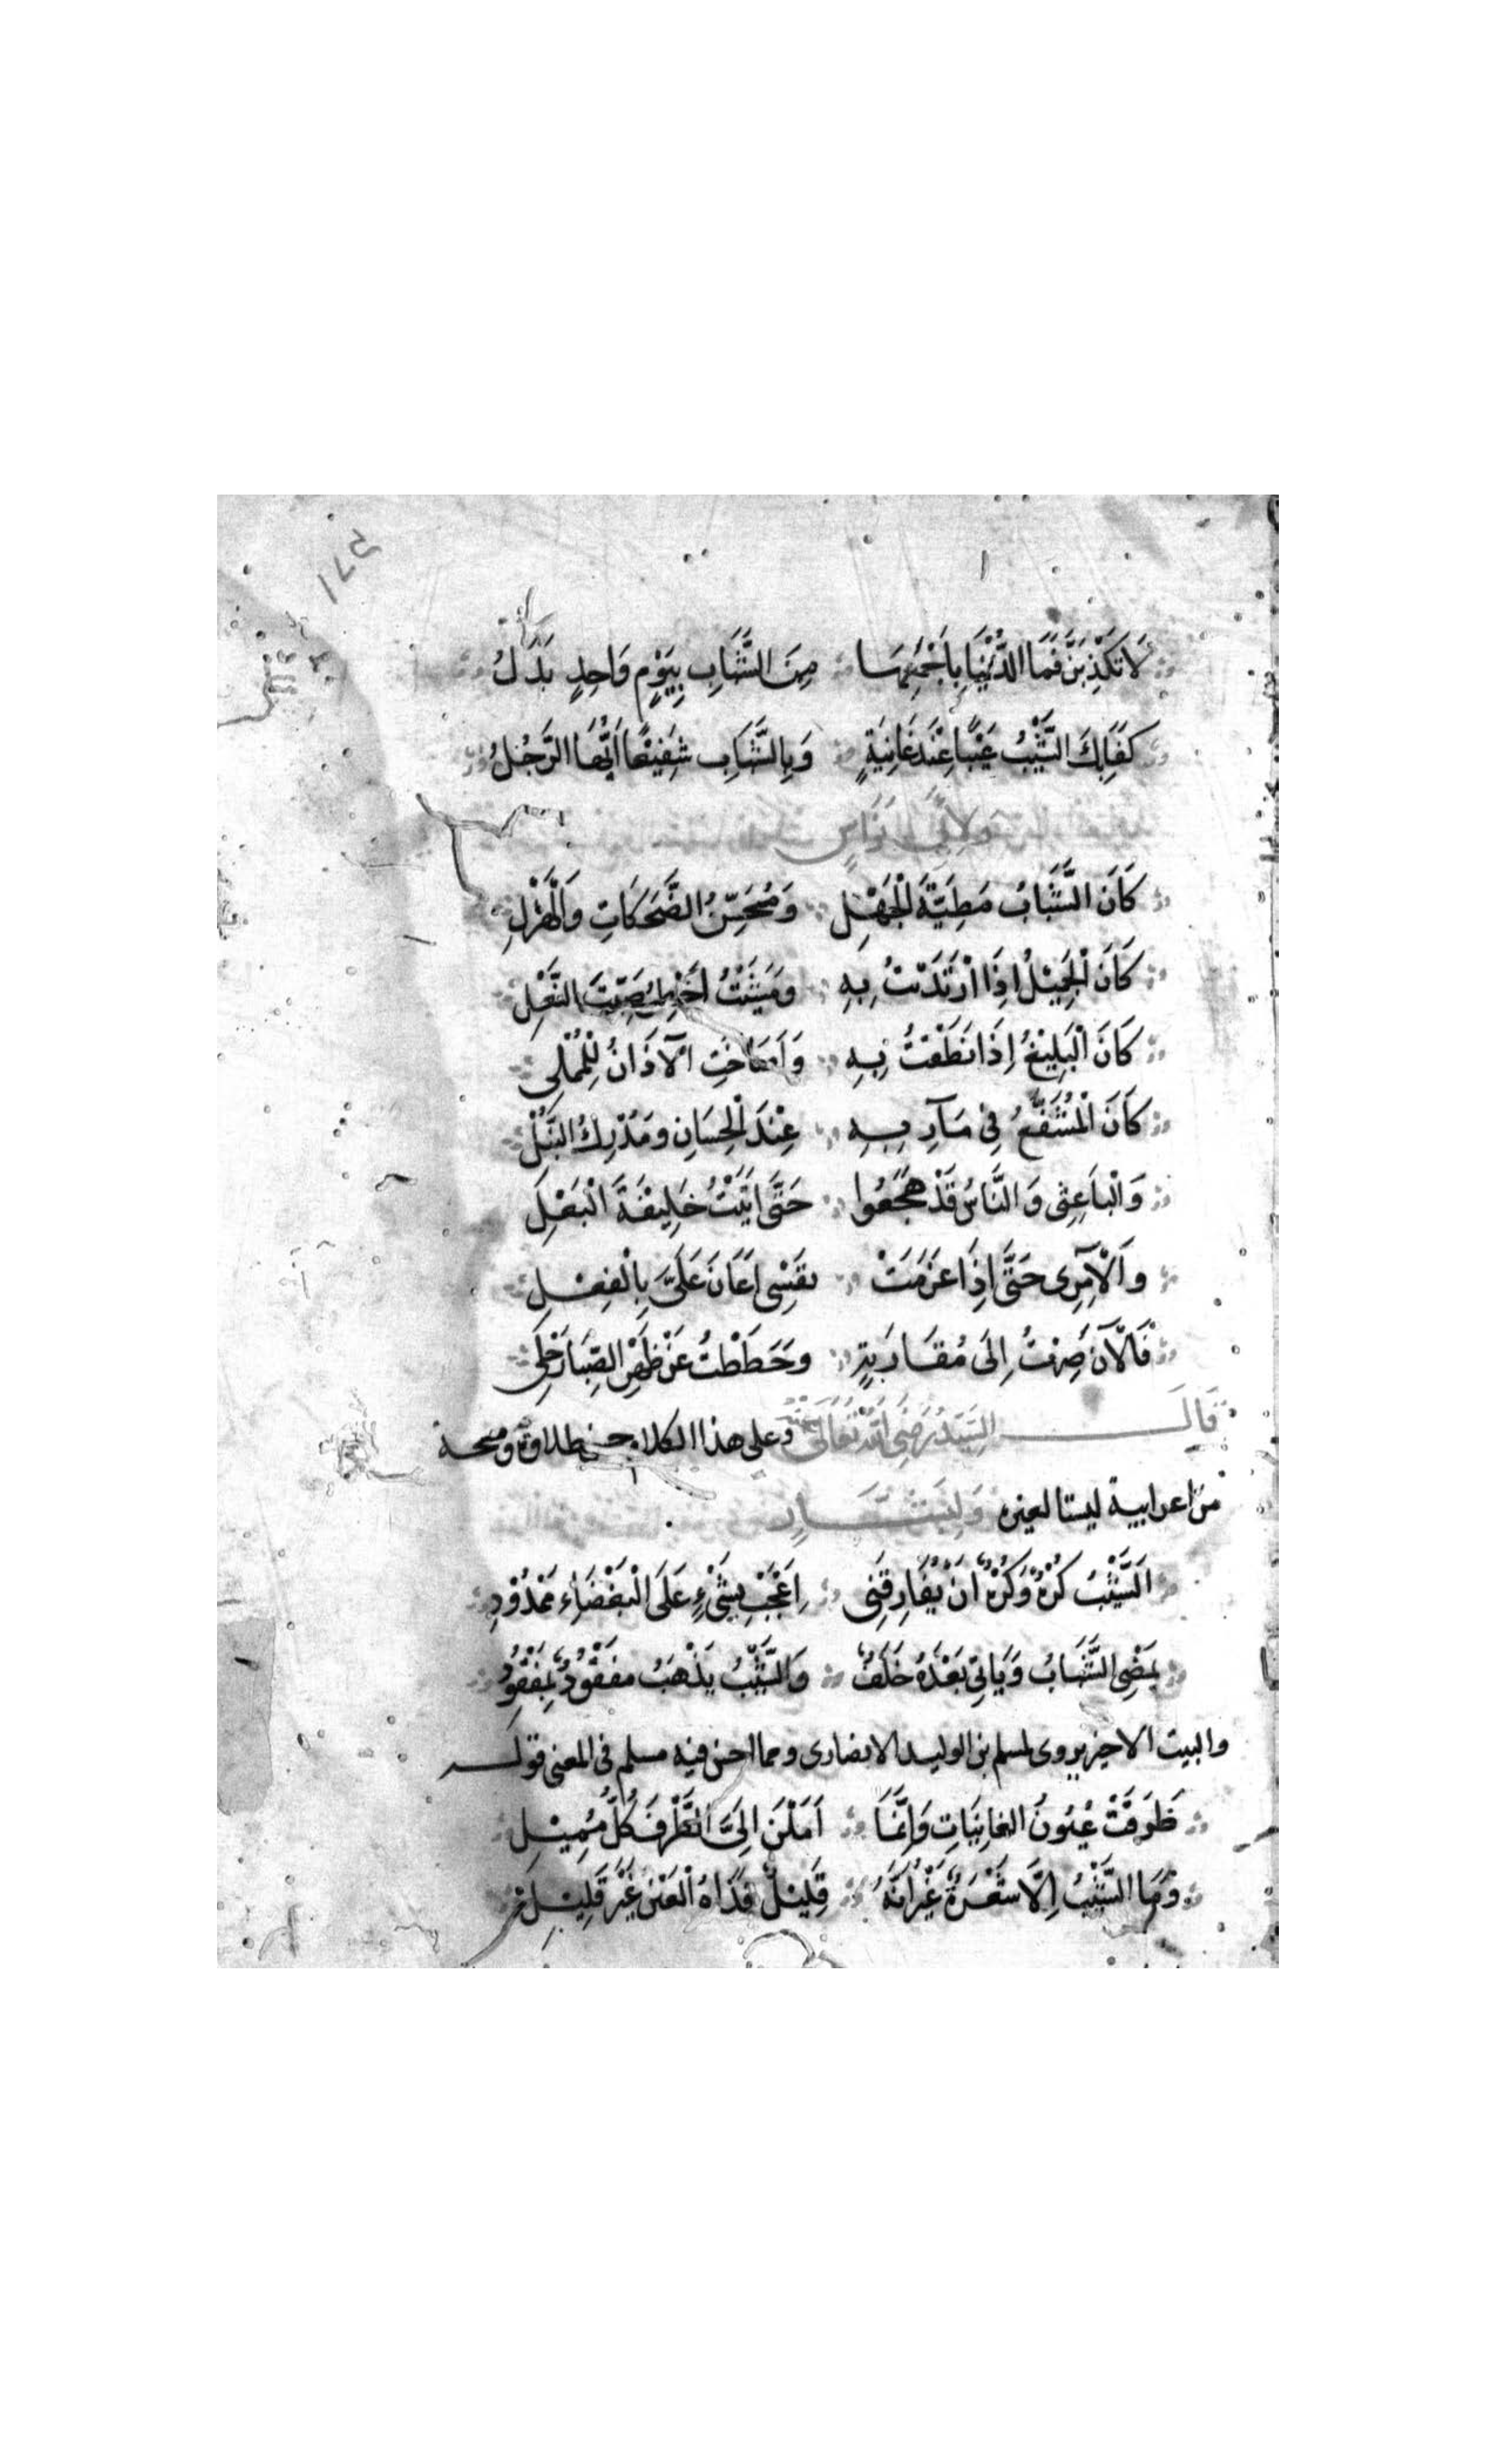 ١٧٥
لَا تَكْذِبَنَّ فَمَا الدُّنْيَا بِاَجْمَعِهَا مِنَ الشَّبَابِ بِيَوْمٍ وَاحِدٍ بَدَلُ
كَفَاكَ بِالشَّيْبِ عَيْبًا عِنْدَ غَانِيَةٍ وَبِالشَّبَابِ شَفِيْعًا اَيُّهَا الرَّجُلُ
وَلِاَبِي نُوَاسٍ
كَانَ الشَّبَابُ مَطِيَّةَ الْجَهْلِ وَمُحَسِّنُ الضَّحَكَاتِ وَالْهَزْلِ
كَانَ الْجَمِيْلُ اِذَا ارْتَدَيْتُ بِهِ وَمَشَيْتُ اَخْطِرُ صَيِّتَ النَّعْلِ
كَانَ الْبَلِيْغُ اِذَا نَطَقْتُ بِهِ وَاَصَاخَتِ الْآذَانُ لِلْمُمْلِى
كَانَ الْمُشَفَّعُ فِى مَآرِبِهِ عِنْدَ الْحِسَانِ وَمُدْرِكُ التَّبْلِ
وَالْبَاعِثِى وَالنَّاسُ قَدْ هَجَعُوا حَتَّى اَبِيْتُ خَلِيفَةَ الْبَعْلِ
وَالْآمِرِى حَتَّى اِذَا عَزَمَتْ نفَسِى اَعَانَ عَلَىَّ بِالْفِعْلِ
فَالْآنَ صِرْتُ اِلَى مُقَارَبَةٍ وَحَطَطْتُ عَنْ ظَهْرِ الصِّبَا رَحْلِى
قَالَ السَّيِّدُ رَضِيَ اللهُ تَعَالَى عَنْهُ وعلى هذا الكلام طلاوة ومسحة
من اعرابية ليستا لغيره وَلِبَشَّارٍ
اَلشَّيْبُ كُرْهٌ وَكُرْهٌ اَنْ يُفَارِقَنِى اِعْجَبْ بِشَىْءٍ عَلَى الْبَغْضَاءِ مَوْدُوْدِ
يَمْضِى الشَّبَابُ وَيَاتِى بَعْدَهُ خَلَفٌ وَالشَّيْبُ يَذْهَبُ مَفْقُودٌ بِمَفْقُودِ
والبيت الاخير يروى لمسلم بن الوليد الانصارى ومما احسن فيه مسلم فى المعنى قوله
طَرَفَتْ عُيُونَ الغانِيَاتِ وَاِنَّمَا اَمَلْنَ اِلَىَّ الطَّرْفَ كُلَّ مُمِيْلِ
وَمَا الشَّيْبُ اِلَّا شَعْرَةٌ غَيْرَ اَنَّهُ قَلِيْلٌ قَذَاةُ الْعَيْنِ غَيْرُ قَلِيْلِ